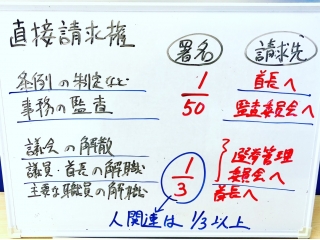 直接請求権 署名 請求先
条例の制定など 1/50 首長へ
事務の監査 監査委員会へ
議会の解散 1/3 選挙管理
議員・首長の解職 委員会へ
主要な職員の解職 首長へ
人関連は 1/3 以上